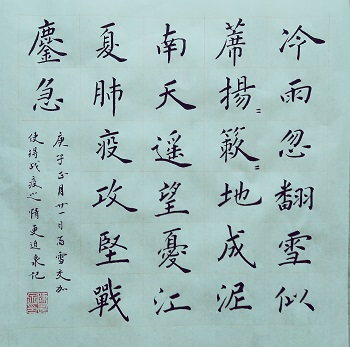 冷雨忽翻雪似
蓆揚〻簌〻地成泥
南天遥望憂江
夏肺疫攻堅戰
鏖急
庚子正月廿一日雨雪交加
使得战疫心情更迫